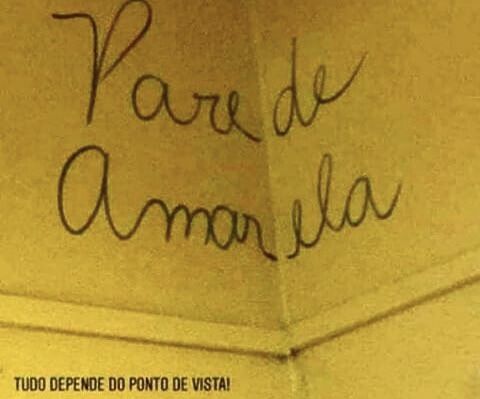 Parede
Amarela
TUDO DEPENDE DO PONTO DE VISTA!